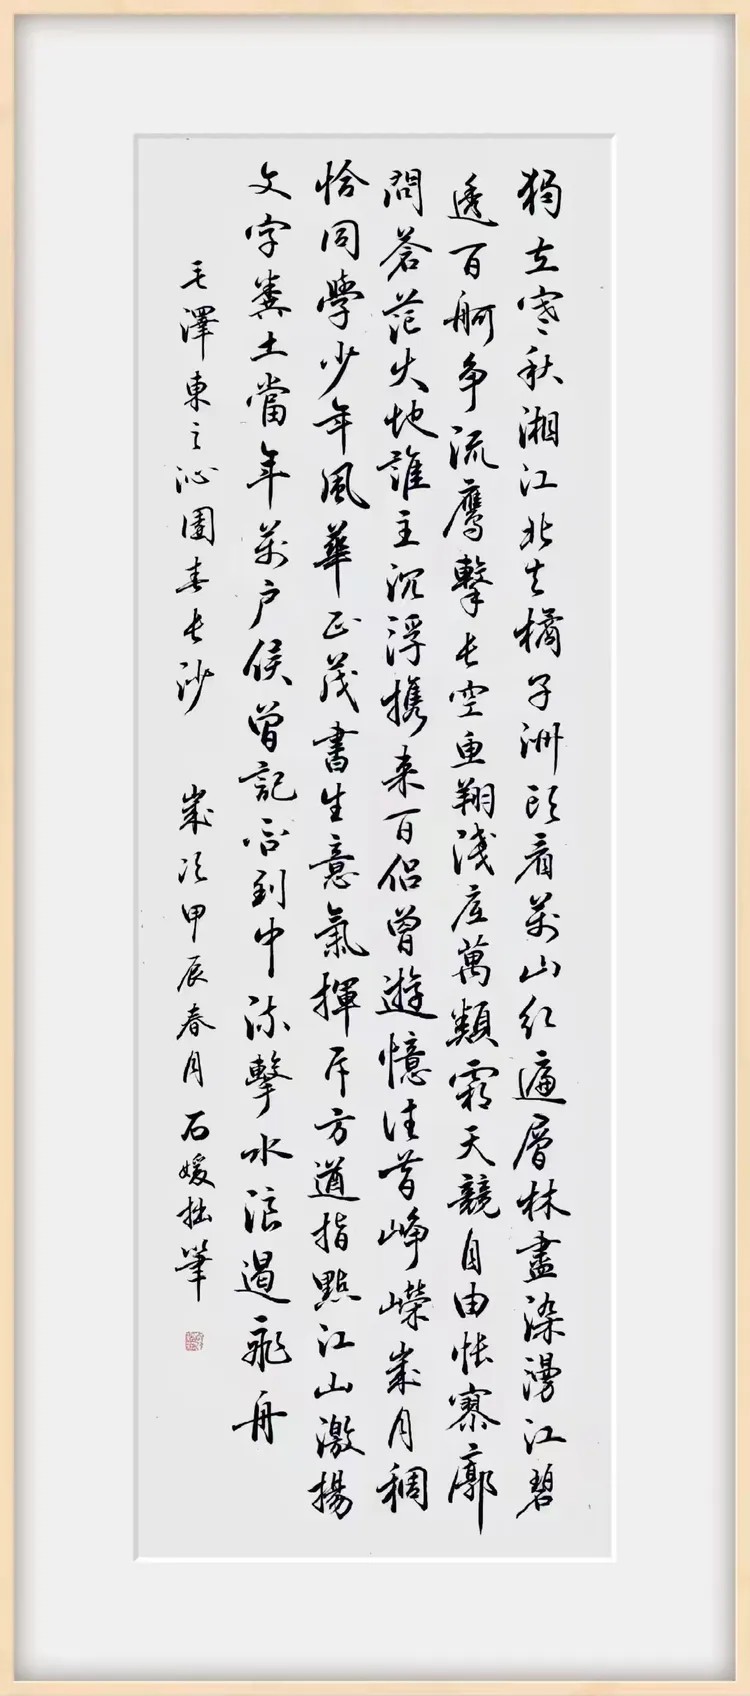 獨立寒秋湘江北去橘子洲頭看萬山紅遍層林盡染漫江碧
透百舸爭流鷹擊長空魚翔淺底萬類霜天競自由悵寥廓
問蒼茫大地誰主沉浮攜來百侶曾遊憶往昔崢嶸歲月稠
恰同學少年風華正茂書生意氣揮斥方遒指點江山激揚
文字糞土當年萬戶侯曾記否到中流擊水浪遏飛舟
毛澤東之沁園春長沙 歲次甲辰春月石媛拙筆